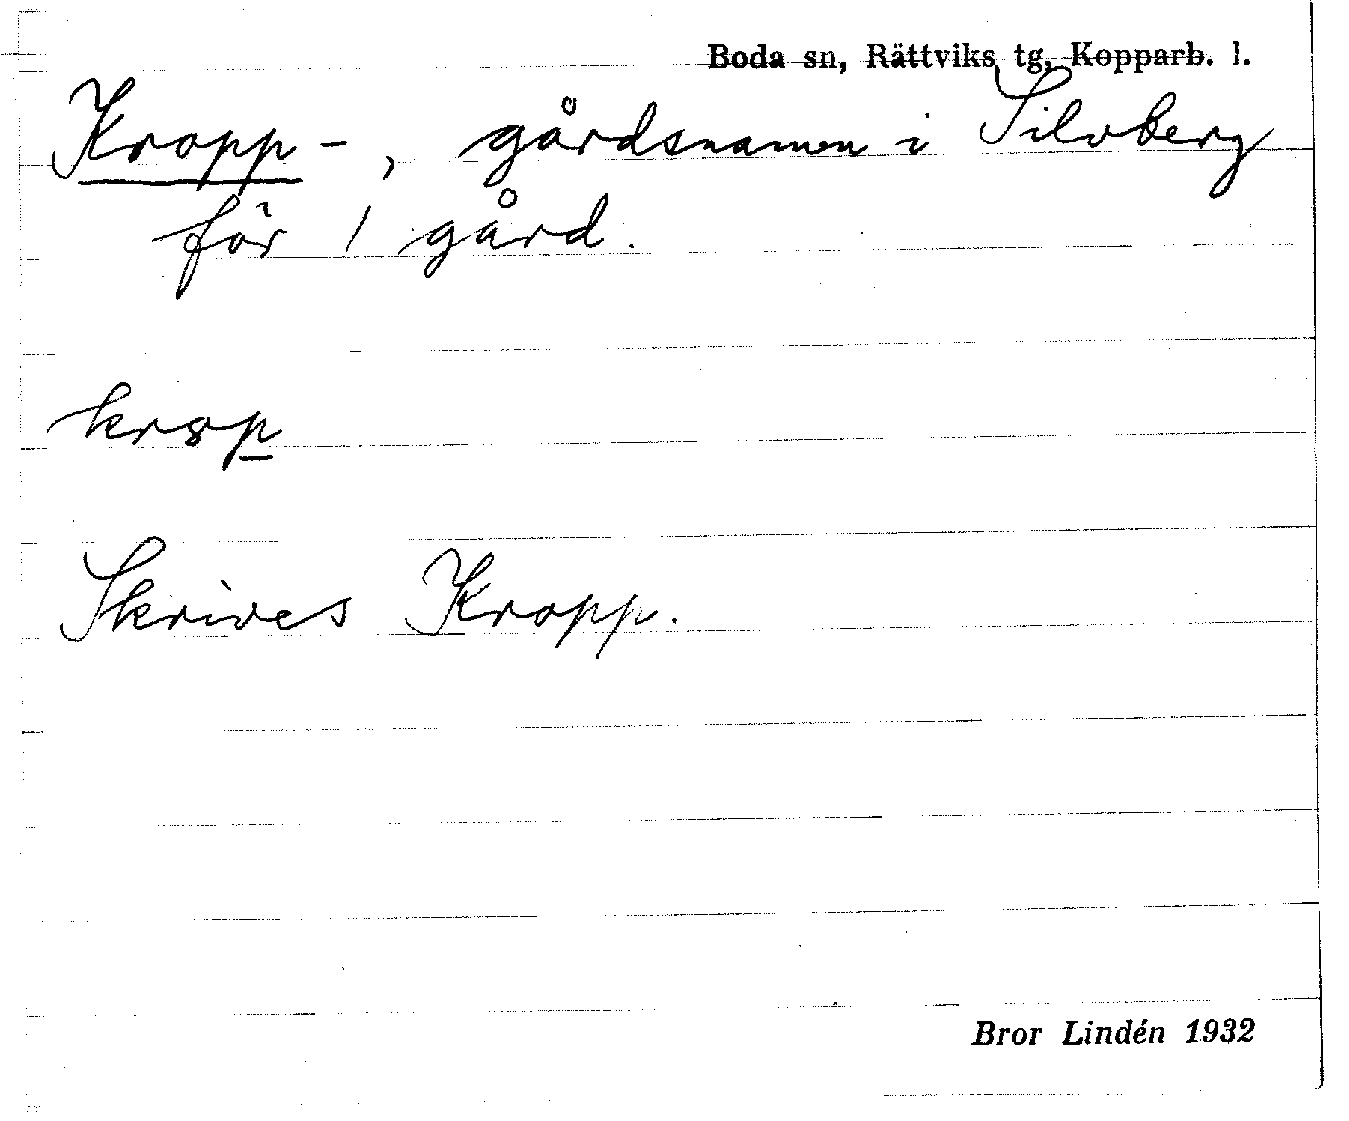 Boda sn, Rättviks tg, Kopparb. l.
Kropp-, gårdsnamn i Silvberg
för 1 gård.
Skrives Kropp.
Bror Lindén 1932